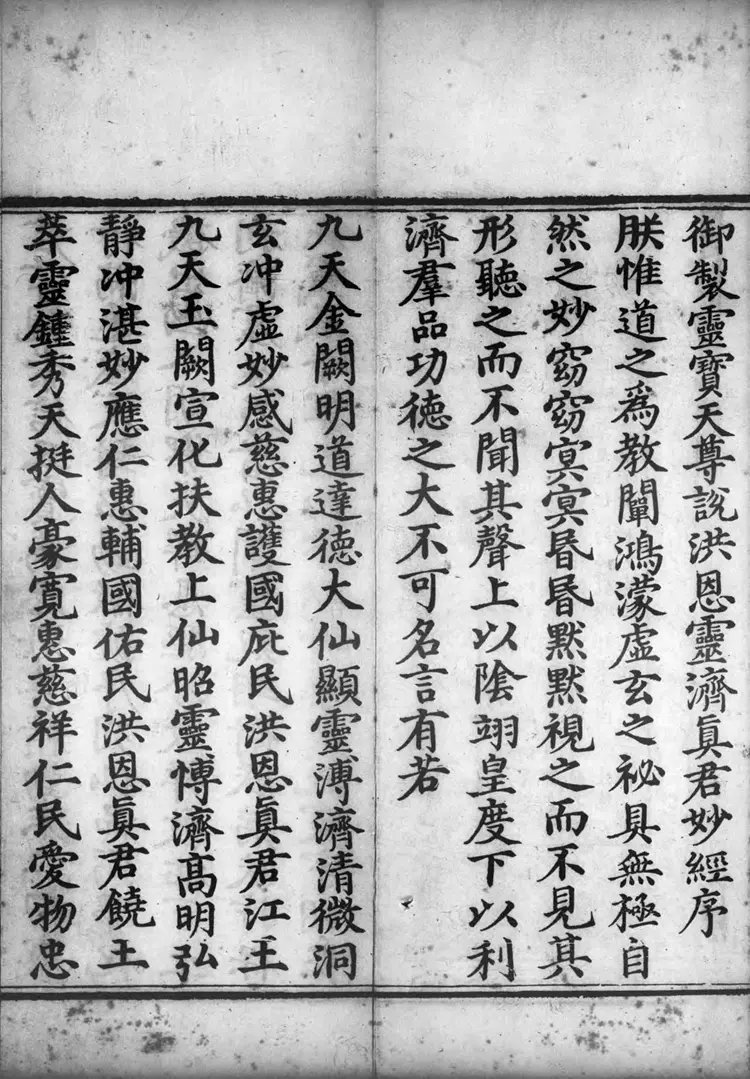 御製靈寶天尊說洪恩靈濟眞君妙經序
朕惟道之爲教闡鴻濛虛玄之祕具無極自
然之妙窈窈冥冥昏昏默默視之而不見其
形聽之而不聞其聲上以陰翊皇度下以利
濟羣品功德之大不可名言有若
九天金闕明道達德大仙顯靈溥濟清微洞
玄冲虛妙感慈惠護國庇民洪恩眞君江王
九天玉闕宣化扶教上仙昭靈博濟高明弘
靜冲湛妙應仁惠輔國佑民洪恩眞君饒王
萃靈鍾秀天挺人豪寬惠慈祥仁民愛物忠